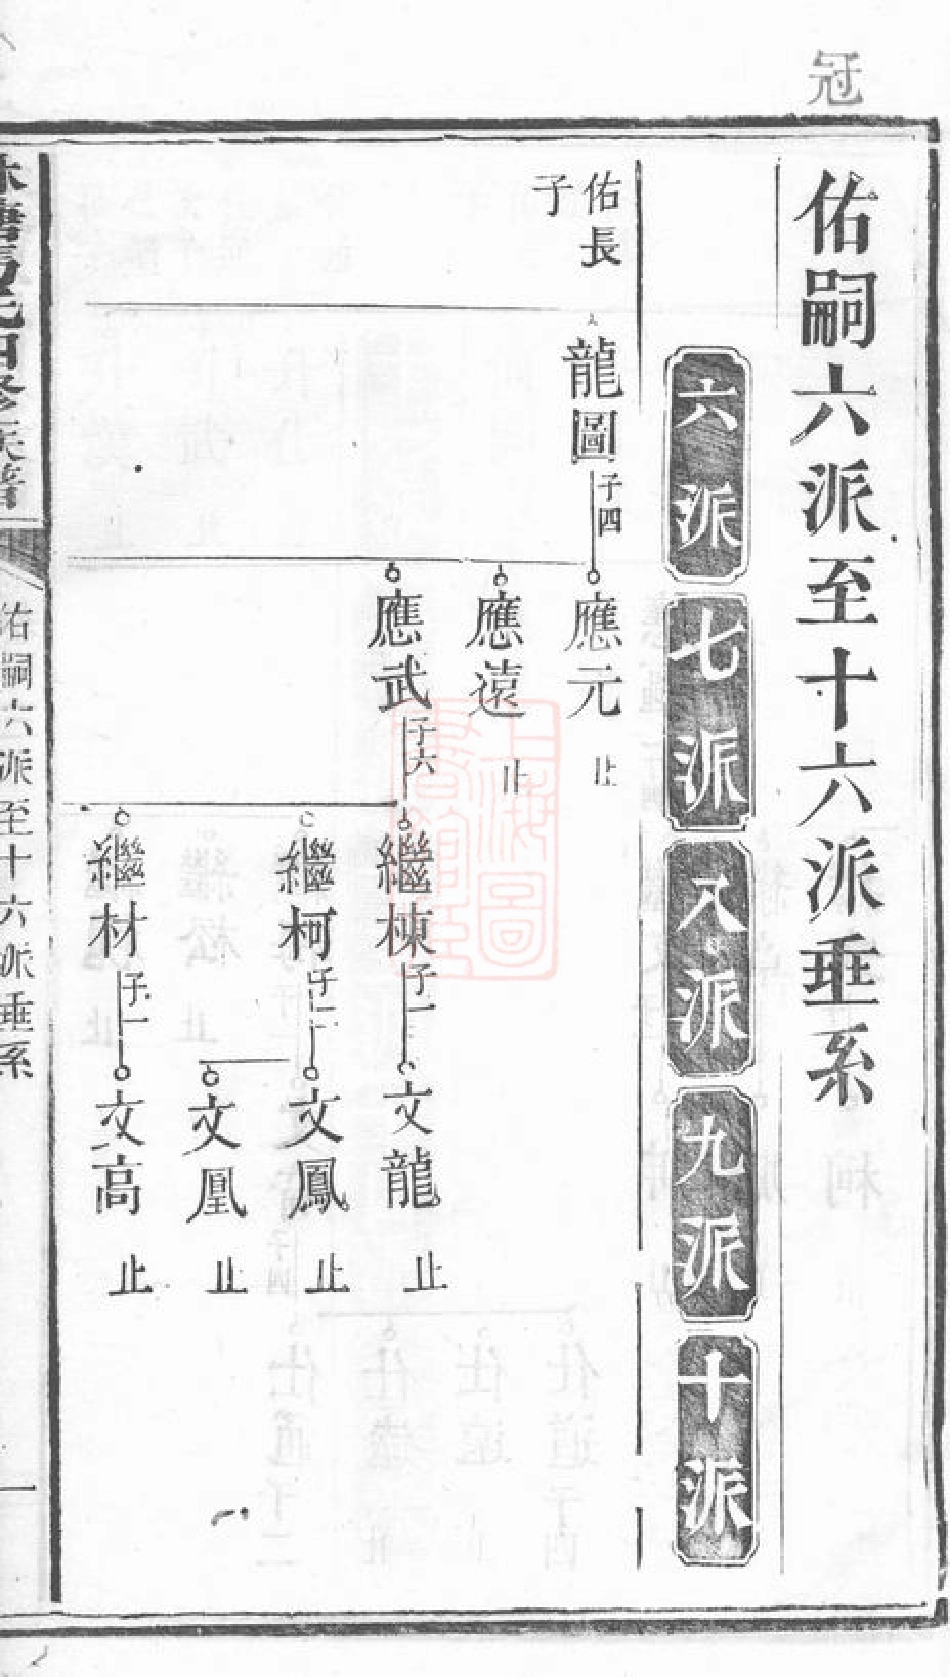 冠
佑嗣六派至十六派垂系
六派
七派
八派
九派
十派
佑長
子
龍圖
子四
應元
止
應遠
止
應武
子六
繼棟
子一
文龍
止
繼柯
子二
文鳳
止
文凰
止
繼材
子一
文高
止
氏四修族譜
佑嗣六派至十六派垂系
一